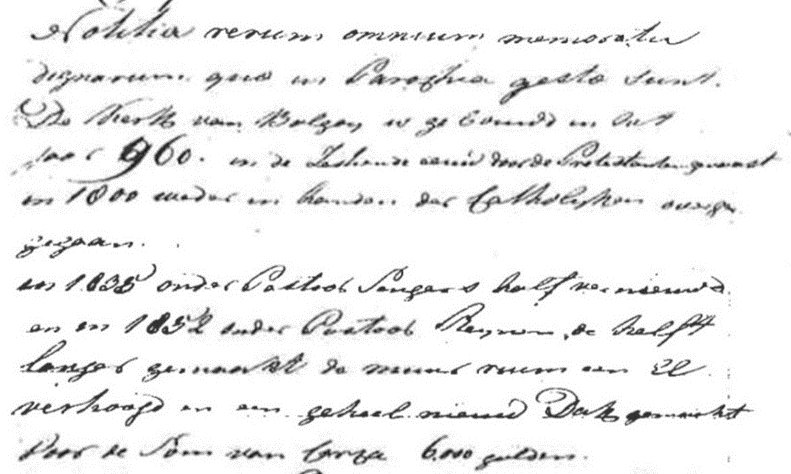 Notitia rerum omnium memoratu
dignarum quae in Parochia gesta sunt.
De Kerk van Balgoy is gebouwd in het
jaar 960. in de Zestiende eeuw door de Protestanten
in 1800 weder in handen der Catholijken overge
gegaan.
in 1835 onder Pastoor Sengers half vernieuwd
en in 1852 onder Pastoor Reynen de helft
langer gemaakt de muur ruim een El
verhoogd en een geheel nieuw Dak gemaakt
Voor de Som van Circa 6000 gulden.